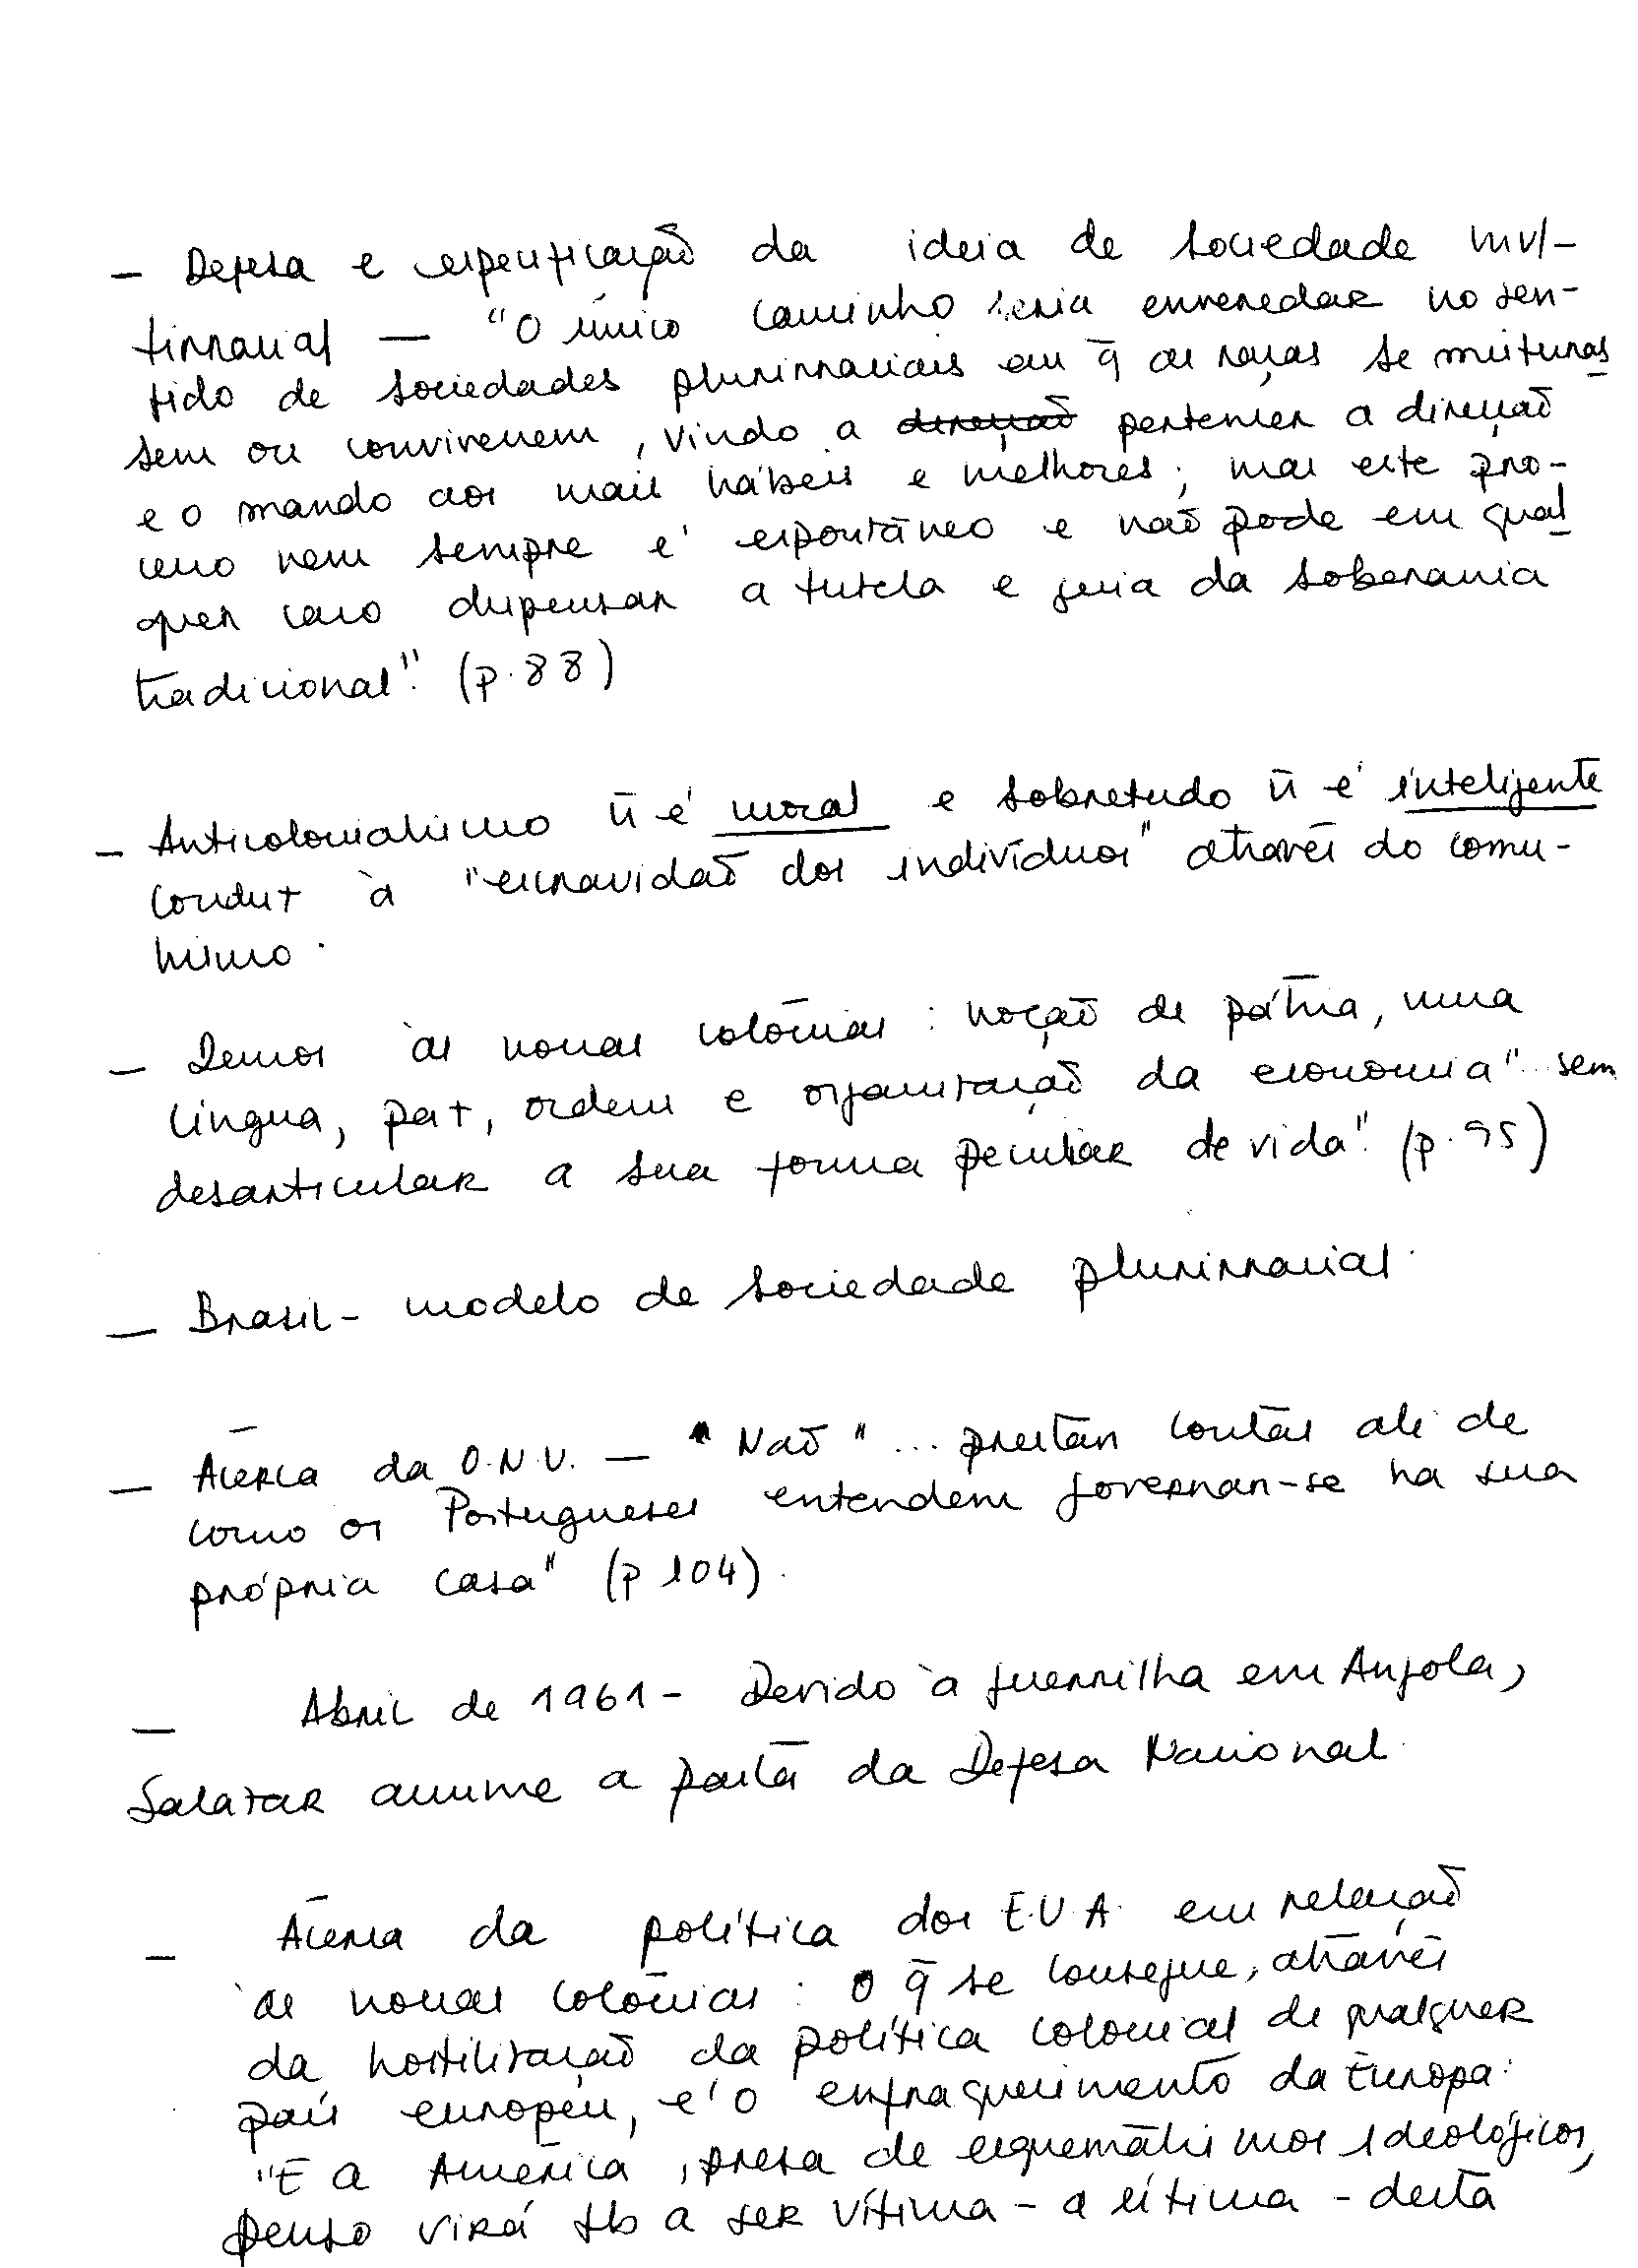 - Defesa e especificação da ideia de sociedade mul-
tirracial — "O único caminho seria enveredar no sen-
tido de sociedades plurirraciais em q̄ as raças se misturas
sem ou convivessem, vindo a direção pertencer a direção
e o mando aos mais hábeis e melhores; mas este pro-
cesso nem sempre é espontâneo e não pode em qual
quer caso dispensar a tutela e guia da soberania
tradicional". (p. 88)
- Anticolonialismo ñ é moral e sobretudo ñ é inteligente
conduz à "escravidão dos indivíduos" através do comu-
nismo.
- Demos às nossas colónias : noção de pátria, uma
língua, paz, ordem e organização da economia "sem
desarticular a sua forma peculiar de vida". (p. 95)
- Brasil - modelo de sociedade plurirracial.
- Acerca da O.N.U. — "Não "... prestar contas ali de
como os Portugueses entendem governar-se na sua
própria casa" (p 104).
- Abril de 1961 - Devido à guerrilha em Angola,
Salazar assume a pasta da Defesa Nacional.
- Acerca da política dos E.U.A. em relação
às nossas colónias : o q̄ se consegue, através
da hostilização da política colonial de qualquer
país europeu, é o enfraquecimento da Europa:
"E a América, presa de esquematismos ideológicos,
penso virá tb a ser vítima - a última - desta